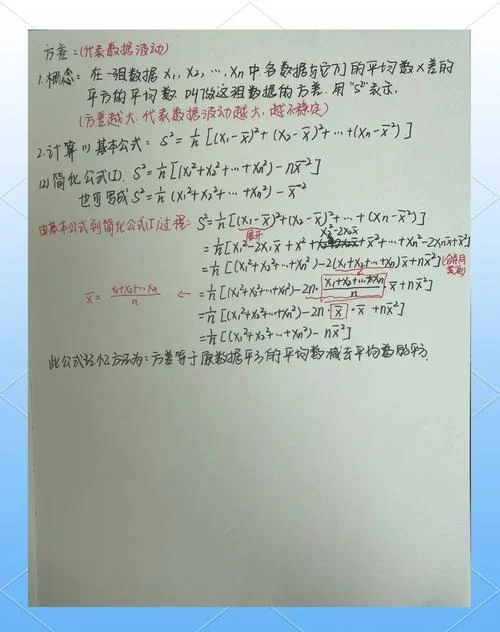 方差:(代表数据波动)
1.概念:在一组数据 x₁, x₂, …, xn 中,各数据与它们的平均数 x̄ 差的
平方的平均数,叫做这组数据的方差.用"s²"表示.
(方差越大,代表数据波动越大,越不稳定)
2.计算 (1) 基本公式: S²=1/n[(x₁-x̄)²+(x₂-x̄)²+…+(xn-x̄)²]
(2) 简化公式(I). S²=1/n[(x₁²+x₂²+…+xn²)-nx̄²]
也可写成 S²=1/n(x₁²+x₂²+…+xn²)-x̄²
由基本公式到简化公式(I)过程: S²=1/n[(x₁-x̄)²+(x₂-x̄)²+…+(xn-x̄)²]
展开 x₂²-2x₂x̄
=1/n[x₁²-2x₁x̄+x̄²+x̄²+…+xn²-2xnx̄+x̄²]
=1/n[(x₁²+x₂²+…+xn²)-2(x₁+x₂+…+xn)x̄+nx̄²] (合并同类项)
x̄=(x₁+x₂+…xn)/n ← =1/n[(x₁²+x₂²+…+xn²)-2n·(x₁+x₂+…+xn)/n·x̄+nx̄²]
=1/n[(x₁²+x₂²+…+xn²)-2n·x̄·x̄+nx̄²]
=1/n[(x₁²+x₂²+…+xn²)-nx̄²]
此公式记忆方法为:方差等于原数据平方的平均数减去平均数的平方.